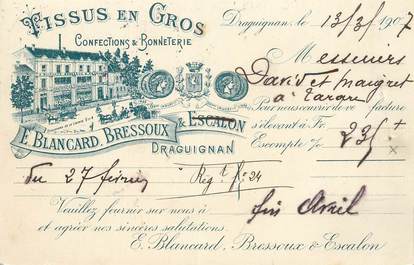 TISSUS EN GROS
CONFECTIONS & BONNETERIE
E. BLANCARD, BRESSOUX & ESCALON
DRAGUIGNAN
Draguignan, le 13/3/ 1907
Messieurs
David et Maigret
à
Pour nous couvrir de v/ facture
s'élevant à Fr. 235
Escompte %
du 27 février
Reg. t. No 34
fin Avril
Veuillez fournir sur nous à
et agréer nos sincères salutations.
E. Blancard, Bressoux & Escalon